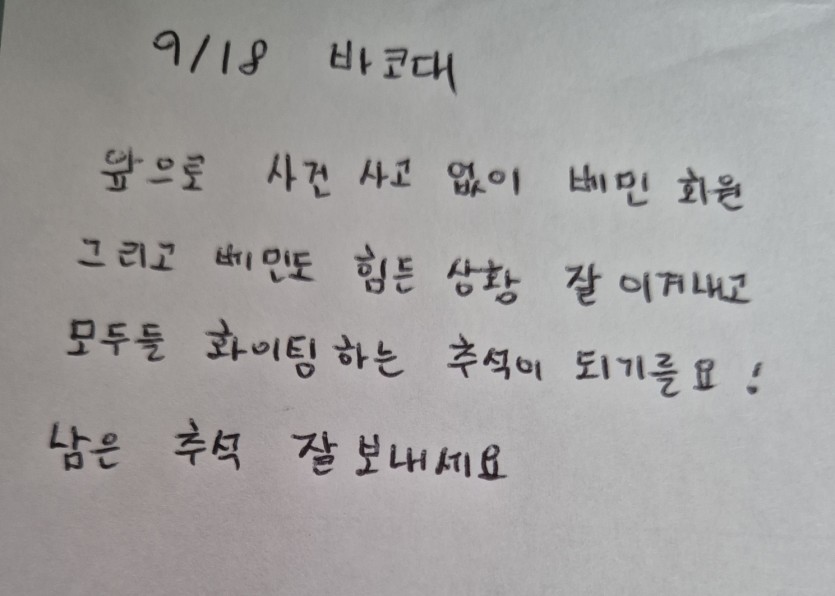 9/18 바코대
앞으로 사건 사고 없이 베민 회원
그리고 베민도 힘든 상황 잘 이겨내고
모두들 화이팅 하는 추석이 되기를요!
남은 추석 잘 보내세요